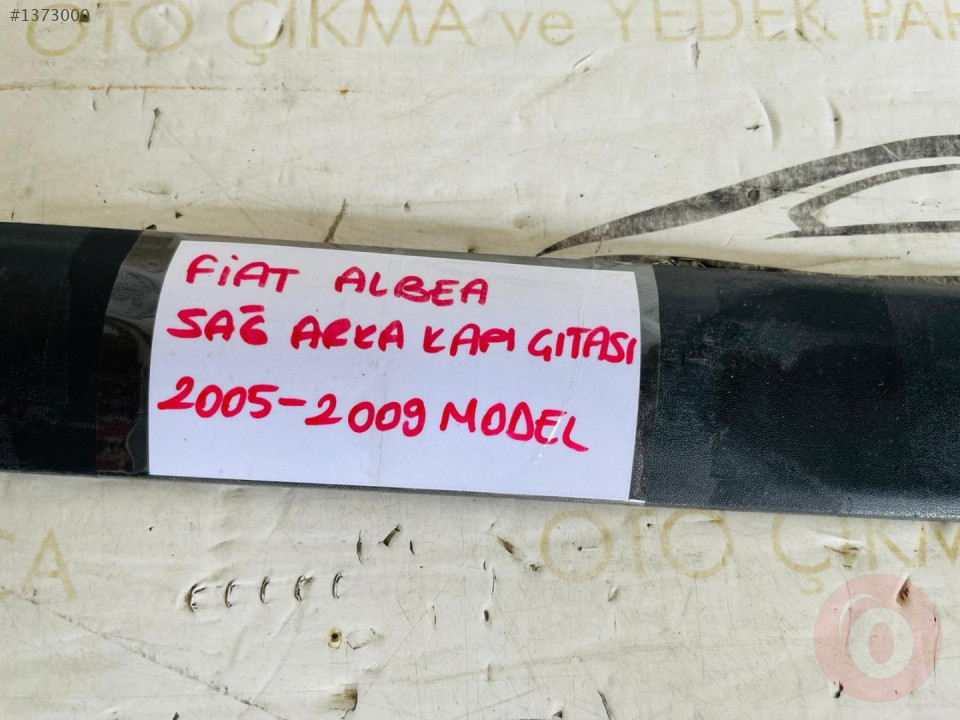 #1373000
OTO ÇIKMA ve YEDEK PAR
FİAT ALBEA
SAĞ ARKA KAPI GITASI
2005-2009 MODEL
OTO ÇIKM
ÇA